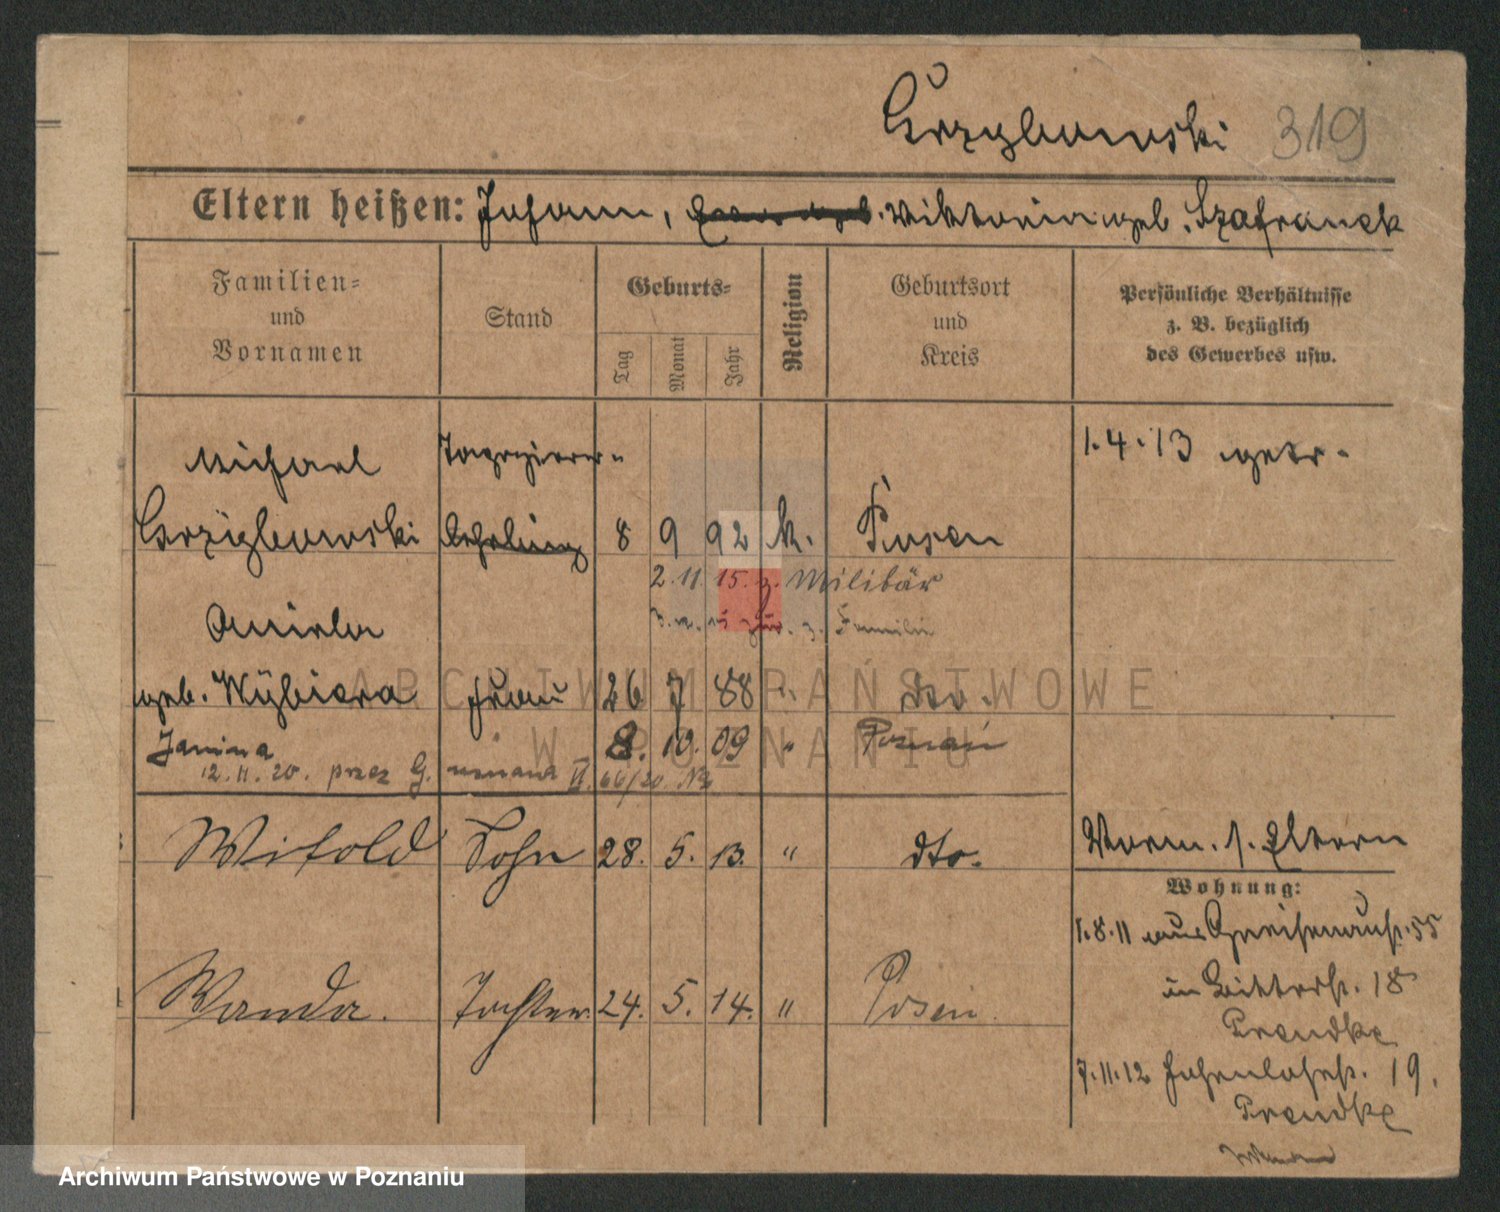 Grzybowski 319
Eltern heißen: Johann, Viktoria geb. Szafranek
Familien-
und
Vornamen
Stand
Geburts-
Tag
Monat
Jahr
Religion
Geburtsort
und
Kreis
Persönliche Verhältnisse
z. B. bezüglich
des Gewerbes usw.
Michael Tapezierer- 1.4.13 getr.
Grzybowski 8 9 92 k. Posen
2.11.15. z. Militär
zur. z. Familie
Aniela
geb. Wybiera Frau 26 7 88 " dto.
Janina 8. 10. 09 " Poznań
12.11.20. przez G. uznana VI. 66/20
Witold Sohn 28. 5. 13. " dto. Vorm. s. Eltern
Wohnung:
1.8.11 aus Gneisenaustr. 55
in Bitterstr. 18
Wanda. Tochter 24. 5. 14. " Posen
Prondke
7.11.12 Hohenlohestr. 19.
Prondke
ARCHIWUM PAŃSTWOWE
W POZNANIU
Archiwum Państwowe w Poznaniu